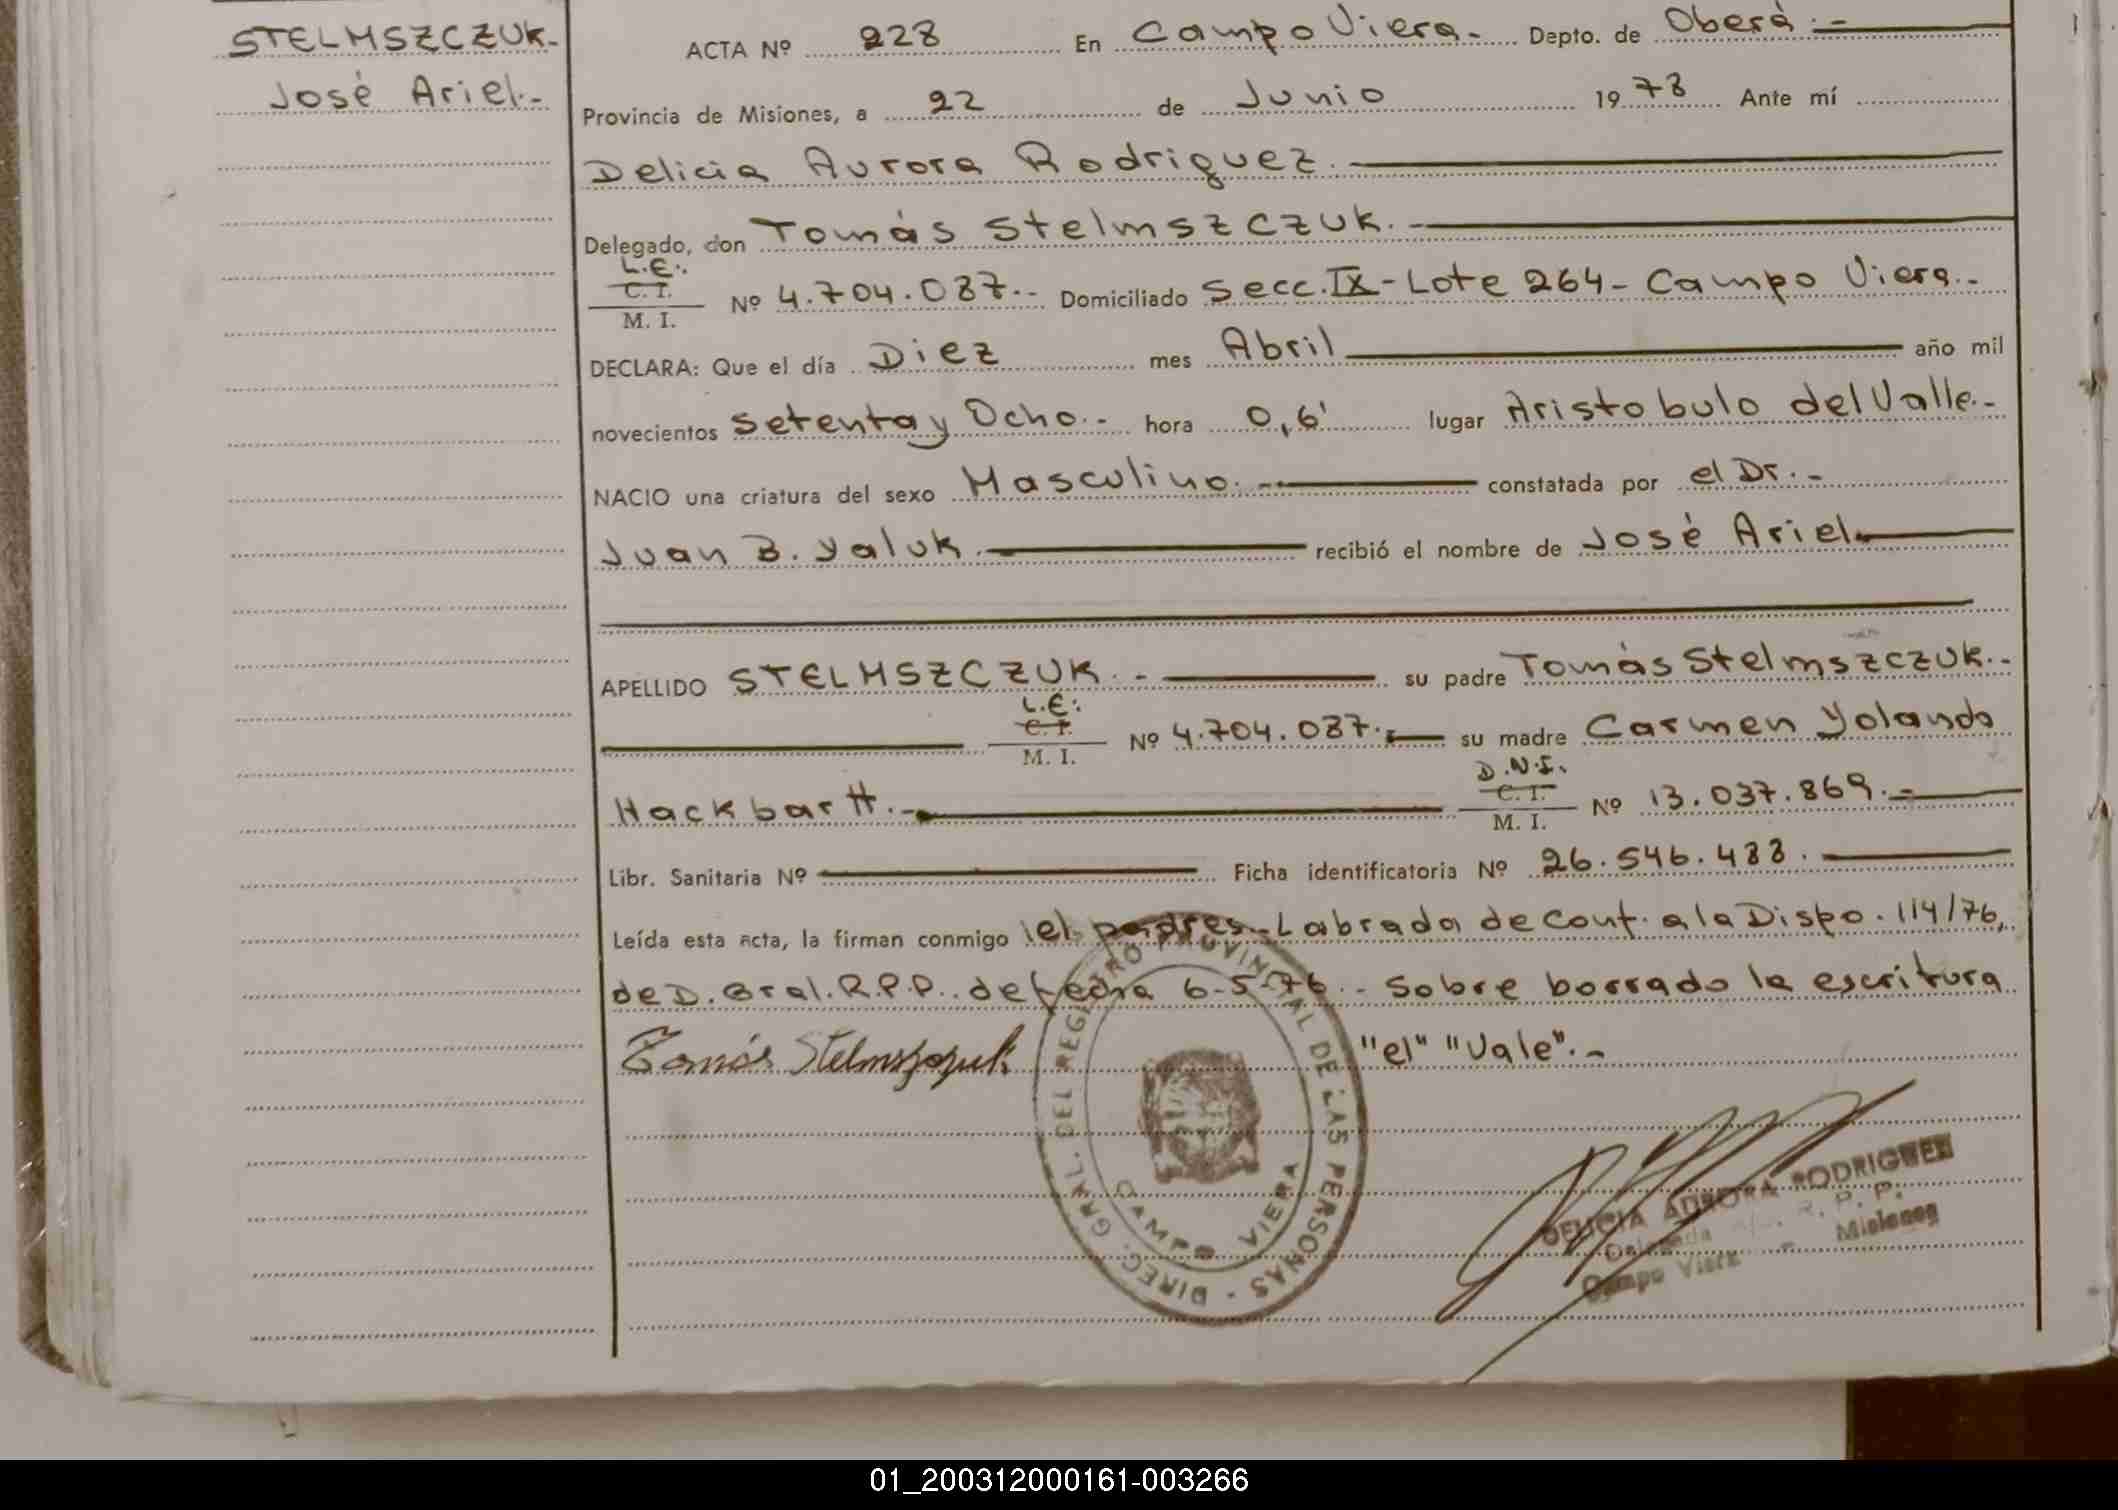 STELMSZCZUK.-
José Ariel.-
ACTA Nº 228 En Campo Viera.- Depto. de Oberá.-
Provincia de Misiones, a 22 de Junio 1978 Ante mí
Delicia Aurora Rodriguez.
Delegado, don Tomás Stelmszczuk.-
L.E.:
C. I.
M. I. Nº 4.704.087.- Domiciliado Secc. IX-Lote 264-Campo Viera.-
DECLARA: Que el día Diez mes Abril año mil
novecientos setenta y Ocho.- hora 0,6' lugar Aristobulo del Valle.-
NACIO una criatura del sexo Masculino.- constatada por el Dr.-
Juan B. Yaluk. recibió el nombre de José Ariel.
APELLIDO STELMSZCZUK.- su padre Tomás Stelmszczuk.-
L.E:
C. I.
M. I. Nº 4.704.087.- su madre Carmen Yolanda
D.N.I.
Hackbartt.- C. I.
M. I. Nº 13.037.869.-
Libr. Sanitaria Nº Ficha identificatoria Nº 26.546.488.
Leída esta acta, la firman conmigo el padres.-Labrada de conf. a la Dispo. 114/76,
de D. Gral. R.P.P. de fecha 6-5-76.- Sobre borrado la escritura
Tomás Stelmszczuk "el" "Vale".-
DIREC. GRAL. DEL REGISTRO PROVINCIAL DE LAS PERSONAS -
CAMPO VIERA
DELICIA AURORA RODRIGUEZ
Delegada R. P. P.
Campo Viera - Misiones
01_200312000161-003266